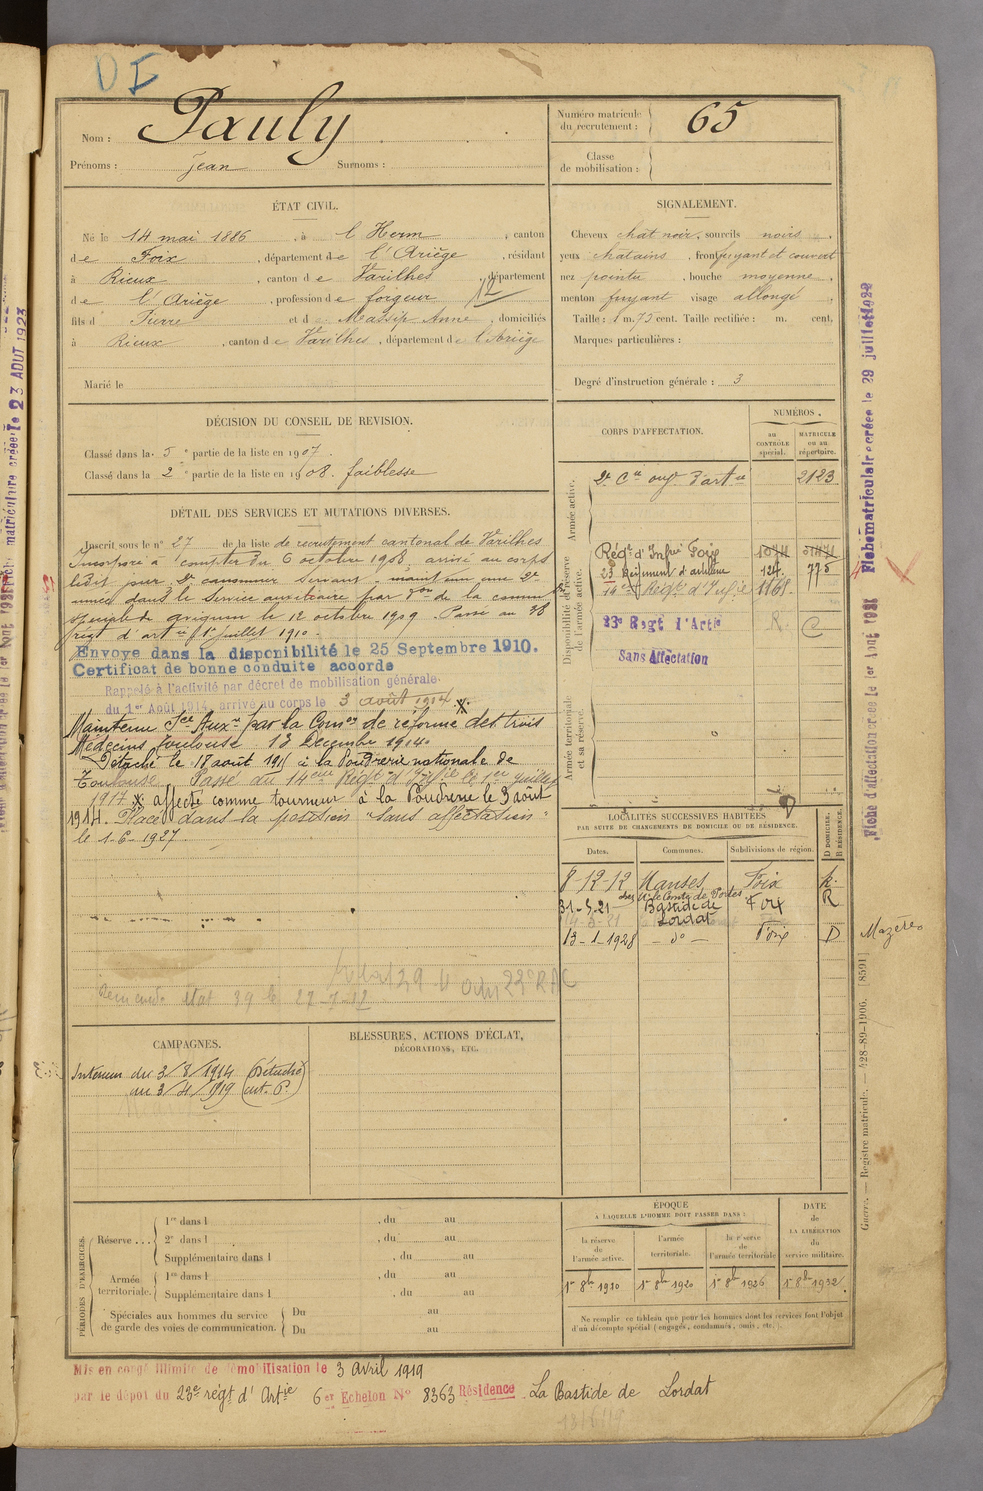 DI
Nom : Pauly
Prénoms : Jean Surnoms :
Numéro matricule du recrutement : 65
Classe de mobilisation :
ÉTAT CIVIL.
Né le 14 mai 1886, à l'Herm, canton
de Foix, département de l'Ariège, résidant
à Rieux, canton de Varilhes, département
de l'Ariège, profession de forgeur 12
fils d Pierre et d Massip Anne, domiciliés
à Rieux, canton de Varilhes, département de l'Ariège
Marié le
SIGNALEMENT.
Cheveux chat noir, sourcils noirs,
yeux chatains, front fuyant et couvert
nez pointu, bouche moyenne,
menton fuyant visage allongé,
Taille : 1 m. 73 cent. Taille rectifiée : m. cent.
Marques particulières :
Degré d'instruction générale : 3
DÉCISION DU CONSEIL DE REVISION.
Classé dans la 5e partie de la liste en 1907.
Classé dans la 2e partie de la liste en 1908. faiblesse
DÉTAIL DES SERVICES ET MUTATIONS DIVERSES.
Inscrit sous le n° 27 de la liste de recrutement cantonal de Varilhes
Incorporé à compter du 6 octobre 1908, arrivé au corps
ledit jour 2e canonnier servant
dans le service auxiliaire par
le 12 octobre 1909. Passé au 38
régt d'artie 1er juillet 1910.
Envoyé dans la disponibilité le 25 Septembre 1910.
Certificat de bonne conduite accordé
Rappelé à l'activité par décret de mobilisation générale
du 1er Août 1914, arrivé au corps le 3 août 1914 x.
Maintenu Sce Auxre par la Comon de réforme des trois
Médecins Toulouse 13 Décembre 1914.
Détaché le 18 août 191 à la Poudrerie nationale de
Toulouse. Passé au 14eme Régt d'Infie le 1er juillet
1917 x affecté comme tourneur à la Poudrerie le 3 août
1914. Placé dans la position "sans affectation"
le 1-6-1927
CORPS D'AFFECTATION.
NUMÉROS
au CONTRÔLE spécial.
MATRICULE ou au répertoire.
Armée active.
2e Cie ouv. d'artie 2123
Disponibilité et réserve de l'armée active.
Régt d'Infie Foix
23 Régiment d'artillerie 124 775
14e Régt d'Infie 1168
23e Regt d'Artie R. C
Sans Affectation
Armée territoriale et sa réserve.
LOCALITÉS SUCCESSIVES HABITÉES
PAR SUITE DE CHANGEMENTS DE DOMICILE OU DE RÉSIDENCE.
Dates. Communes. Subdivisions de région. D DOMICILE. R RÉSIDENCE.
8-12-12 Manses Foix R.
chez Mr le Comte de Portes
31-5-21 Bastide de Lordat Foix R
13-1-1928 — do — Foix D
Mazères
CAMPAGNES.
Intérieur du 3/8/1914 (Détaché
au 3/4/1919
BLESSURES, ACTIONS D'ÉCLAT,
DÉCORATIONS, ETC.
PÉRIODES D'EXERCICES.
Réserve ... 1re dans l , du au
2e dans l , du au
Supplémentaire dans l , du au
Armée territoriale. 1re dans l , du au
Supplémentaire dans l , du au
Spéciales aux hommes du service de garde des voies de communication. Du au
Du au
ÉPOQUE
A LAQUELLE L'HOMME DOIT PASSER DANS :
la réserve de l'armée active.
l'armée territoriale.
la réserve de l'armée territoriale
DATE de LA LIBÉRATION du service militaire.
1er 8bre 1910 1er 8bre 1920 1er 8bre 1926 1er 8bre 1932
Ne remplir ce tableau que pour les hommes dont les services font l'objet
d'un décompte spécial (engagés, condamnés, omis, etc.).
Mis en congé illimité de démobilisation le 3 Avril 1919
par le dépôt du 23e régt d'Artie 6er Echelon N° 8363 Résidence La Bastide de Lordat
Fiche matriculaire créée le 29 juillet 1922
Fiche d'affectation créée le 1er Août 1921
Guerre. — Registre matricule. — 428-89-1906. [8591]